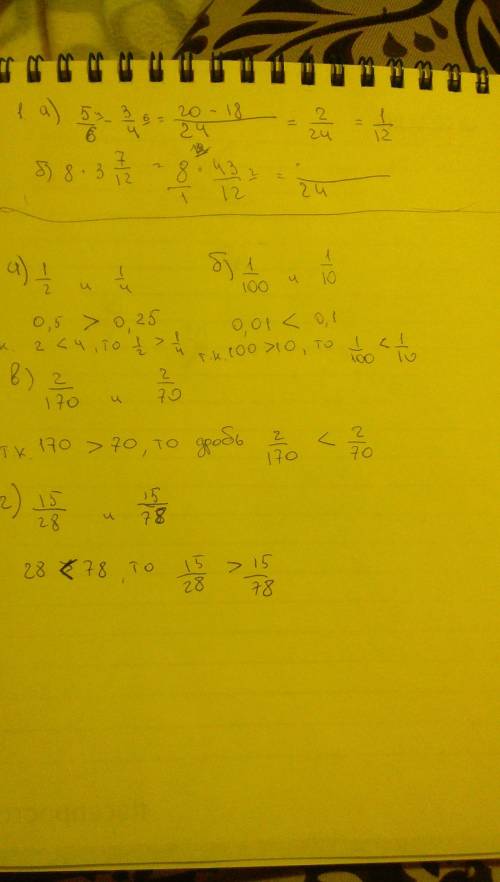 1. а) 5/6 - 3/4 = 20 - 18/24 = 2/24 = 1/12
б) 8 · 3 7/12 = 8/1 · 43/12 = = /24
а) 1/2 и 1/4 б) 1/100 и 1/10
0,5 > 0,25 0,01 < 0,1
к. 2 < 4, то 1/2 > 1/4 т.к. 100 > 10, то 1/100 < 1/10
в) 2/170 и 2/70
т.к. 170 > 70, то дробь 2/170 < 2/70
г) 15/28 и 15/78
28 < 78, то 15/28 > 15/78